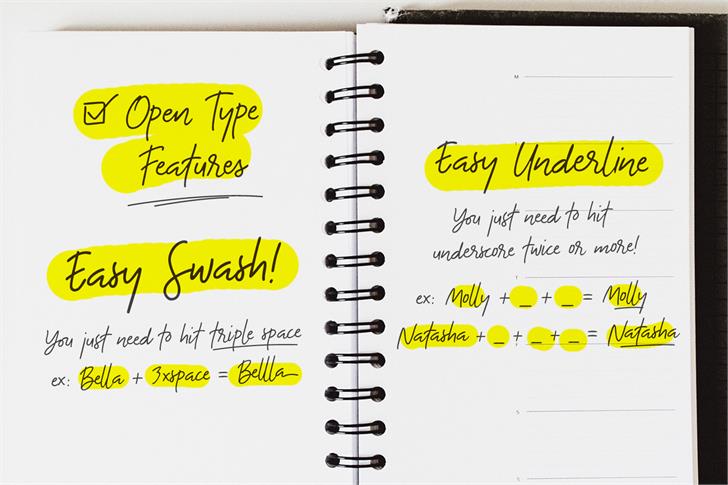 Open Type
Features
Easy Swash!
You just need to hit triple space
ex: Bella + 3xspace = Bellla
M
Easy Underline
You just need to hit
underscore twice or more!
ex: Molly + _ + _ = Molly
Natasha + _ + _ + _ = Natasha
S